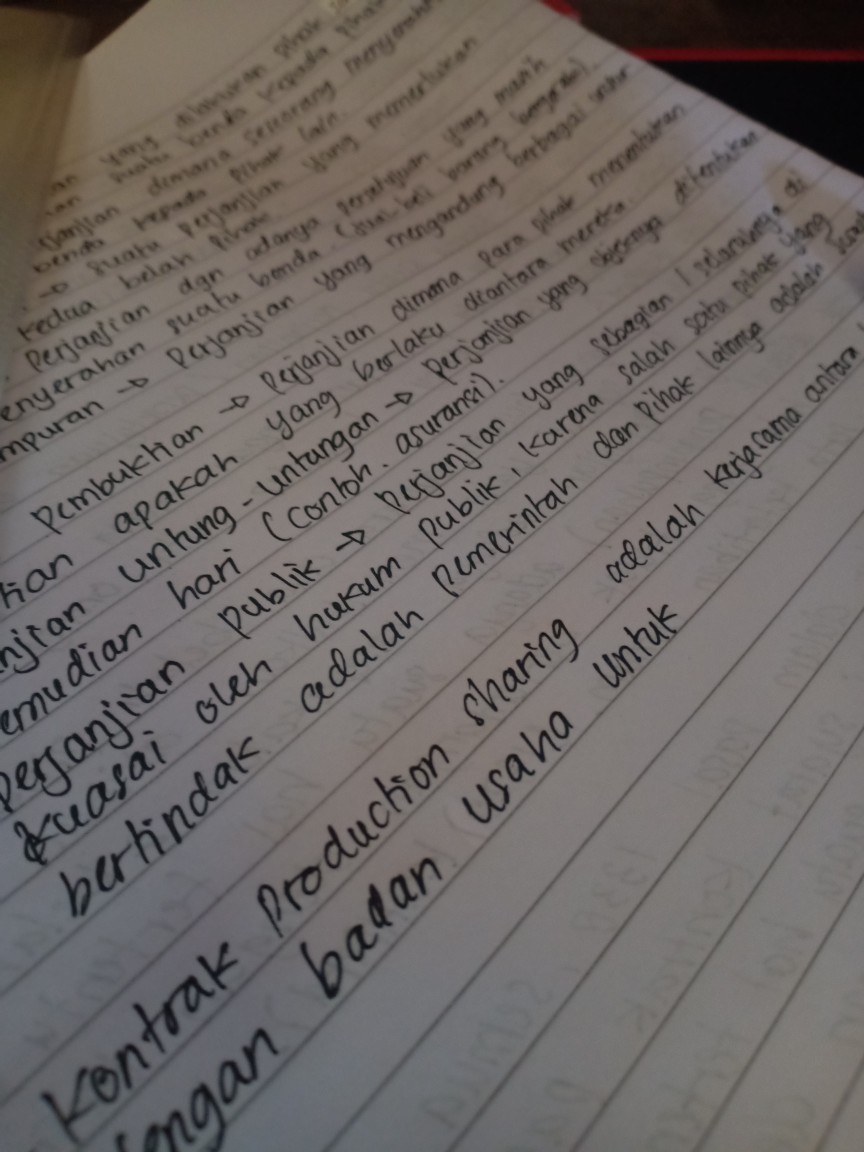 an yang dilakukan pihak
an suatu benda kepada pihak
janjian dimana seseorang menyerahkan
benda kepada pihak lain.
→ suatu perjanjian yang memerlukan
kedua belah pihak
perjanjian dgn adanya persetujuan yang masih
enyerahan suatu benda. (jual beli barang bergerak).
mpuran → perjanjian yang mengandung berbagai unsur
pembuktian → perjanjian dimana para pihak menentukan
tian apakah yang berlaku diantara mereka.
njian untung-untungan → perjanjian yang objeknya ditentukan
emudian hari (contoh. asuransi).
perjanjian publik → perjanjian yang sebagian / seluruhnya di
kuasai oleh hukum publik, karena salah satu pihak yang
bertindak adalah pemerintah dan pihak lainnya adalah
Kontrak Production sharing adalah kerjasama antara
dengan badan usaha untuk